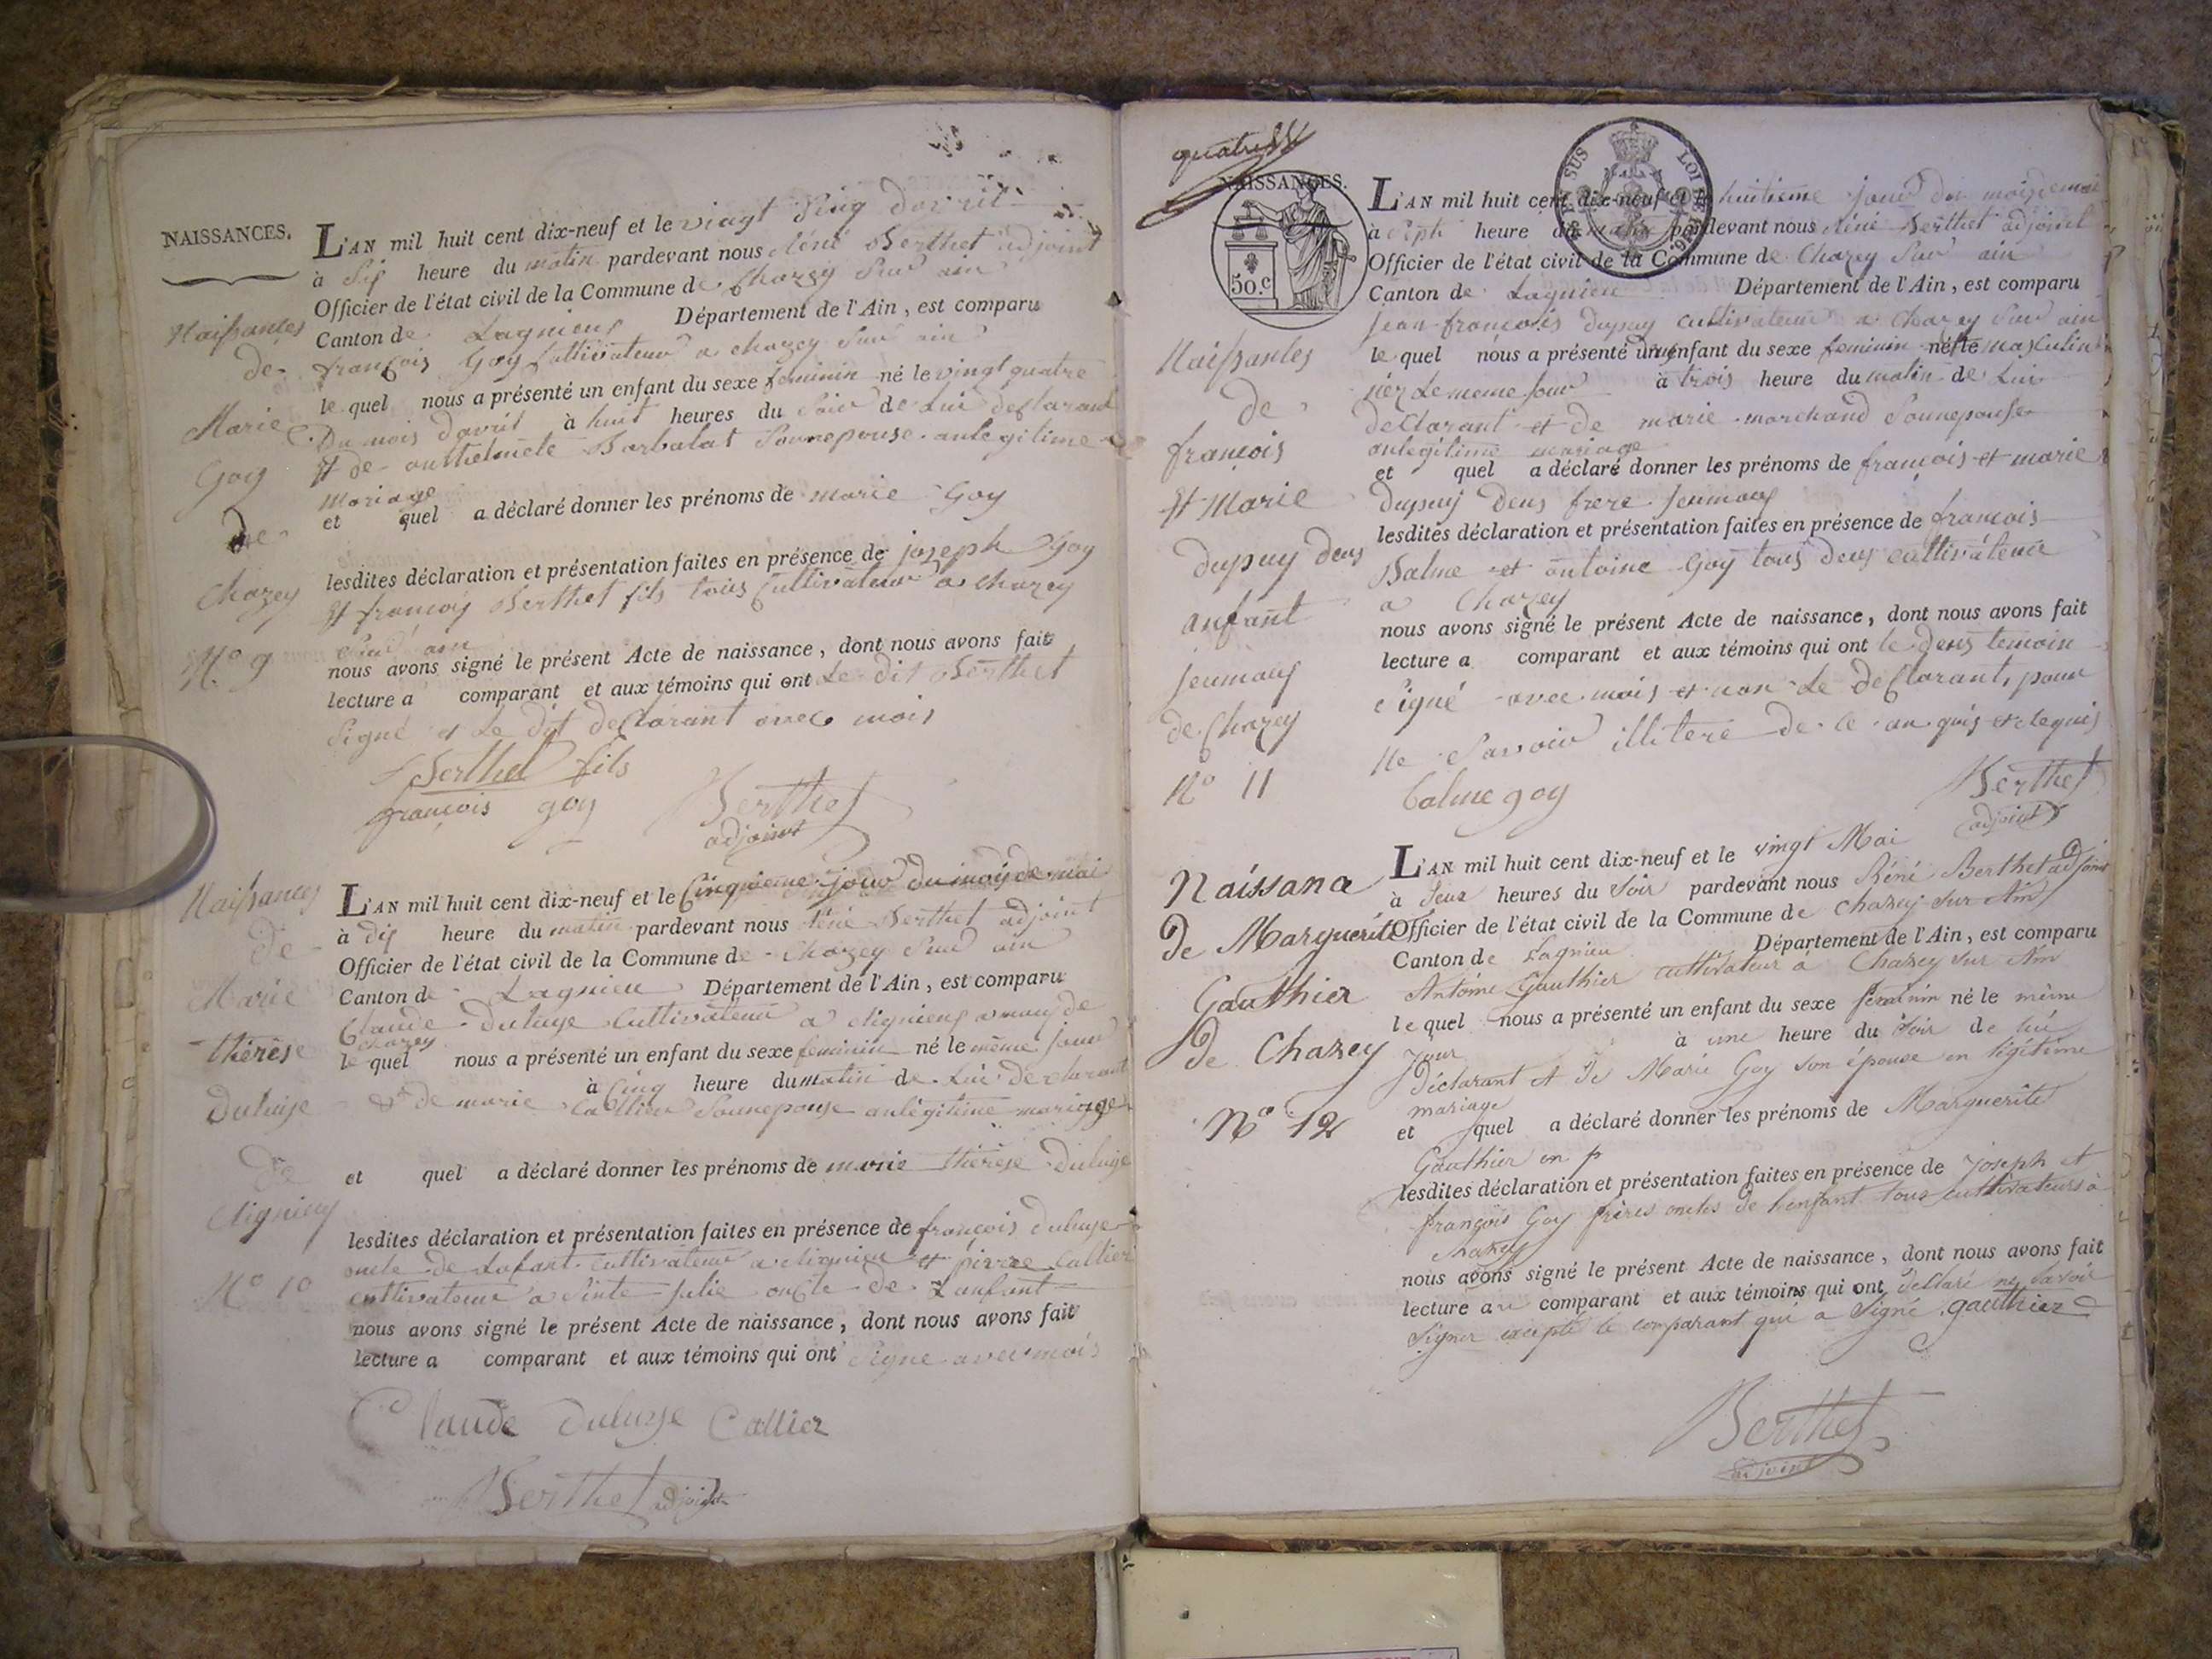 NAISSANCES.
Naissances
de
Marie
Goy
de
Chazey
N.º 9
L'AN mil huit cent dix-neuf et le vingt sinq davril
à dis heure du matin pardevant nous Réné Berthet adjoint
Officier de l'état civil de la Commune de Chazey Sur ain
Canton de Lagnieu Département de l'Ain, est comparu
françois Goy Cultivateur a chazey Sur ain
le quel nous a présenté un enfant du sexe feminin né le vingt quatre
Du mois davril à huit heures du Soir de Lui declarant
et de anthelmete Barbalat Sonnepouse anlegitime
mariage
et quel a déclaré donner les prénoms de marie Goy
lesdites déclaration et présentation faites en présence de joseph Goy
et françois Berthet fils tous Cultivateur a chazey
Sur ain
nous avons signé le présent Acte de naissance, dont nous avons fait
lecture a comparant et aux témoins qui ont Le dit Berthet
Signé et Le dit declarant avec mois
Berthet fils
françois goy Berthet
adjoint
Naissances
de
Marie
thérèse
Duluije
de
Rignieu
N.º 10
L'AN mil huit cent dix-neuf et le Cinquieme jour du mois de mai
à dis heure du matin pardevant nous Réné Berthet adjoint
Officier de l'état civil de la Commune de Chazey Sur ain
Canton de Lagnieu Département de l'Ain, est comparu
Claude Duluye Cultivateur a Rignieu amau de
Chazey
le quel nous a présenté un enfant du sexe feminin né le même jour
à Cinq heure du matin de Lui declarant
et de marie Callier Sonnepouse anlégitime mariage
et quel a déclaré donner les prénoms de marie thérèse Duluije
lesdites déclaration et présentation faites en présence de françois duluye
oncle de Lafant cultivateur a Rignieu et pierre Callier
cultivateur a Sinte Julie oncle de Lanfant
nous avons signé le présent Acte de naissance, dont nous avons fait
lecture a comparant et aux témoins qui ont Signe avec mois
Claude Duluye Callier
Berthet adjoint
NAISSANCES.
50.c
LOI DE 1816.
Naissantes
de
françois
et Marie
Dupuy deus
anfant
jeumaus
de Chazey
N.º 11
L'AN mil huit cent dix-neuf et le huitieme jour du mois de mai
à septs heure du matin pardevant nous Réné Berthet adjoint
Officier de l'état civil de la Commune de Chazey Sur ain
Canton de Lagnieu Département de l'Ain, est comparu
Jean-françois Dupuy cultivateur a Chazey Sur ain
le quel nous a présenté un enfant du sexe feminin né le masculin
néz Le meme jour à trois heure du matin de Lui
declarant et de marie marchand Sonnepouse
anlégitime mariage
et quel a déclaré donner les prénoms de françois et marie
dupuy Deus frere Jeumaus
lesdites déclaration et présentation faites en présence de françois
Balme et antoine Goy tous deus cultivateur
a Chazey
nous avons signé le présent Acte de naissance, dont nous avons fait
lecture a comparant et aux témoins qui ont le deus temoin
Signé avec mois et non Le declarant, pour
ne Savoir illitere de ce an quis et requis
balme goy Berthet
adjoint
Naissance
De Marguerite
Gauthier
De Chazey
Nº 12
L'AN mil huit cent dix-neuf et le vingt Mai
à deux heures du Soir pardevant nous Réné Berthet adjoint
Officier de l'état civil de la Commune de Chazey Sur Ain
Canton de Lagnieu Département de l'Ain, est comparu
Antoine Gauthier cultivateur à Chazey Sur Ain
le quel nous a présenté un enfant du sexe feminin né le même
jour à une heure du Soir de lui
Déclarant et de Marie Goy son épouse en légitime
mariage
et quel a déclaré donner les prénoms de Marguerite
Gauthier
lesdites déclaration et présentation faites en présence de Joseph et
françois Goy frères oncles de l'enfant tous cultivateurs à
chazey
nous avons signé le présent Acte de naissance, dont nous avons fait
lecture au comparant et aux témoins qui ont déclaré ne Savoir
Signer excepté le comparant qui a Signé. gauthier
Berthet
adjoint